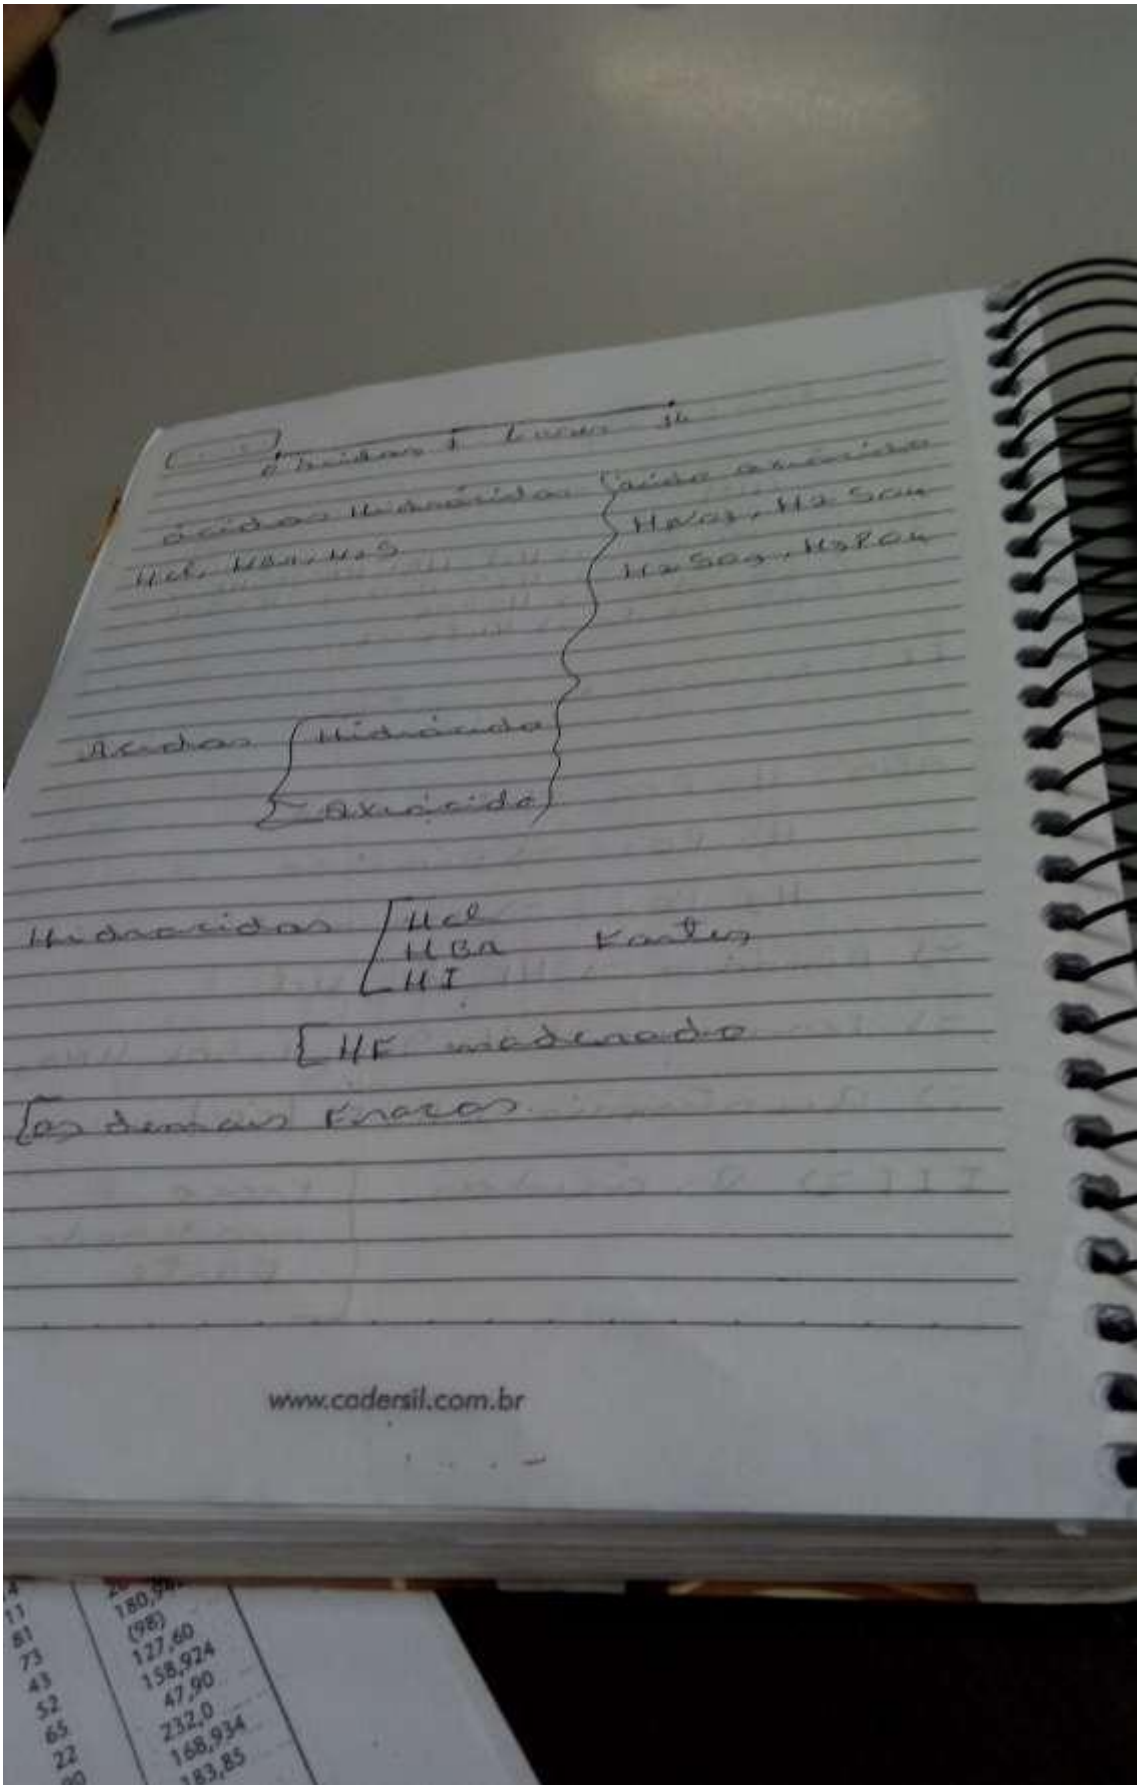 ácidos Hidrácidos
Hcl, HBr, H2S
ácido oxiácido
HNO3, H2SO4
H2SO3, H3PO4
Acidos Hidrácido
Oxiácido
Hidracidos Hcl
HBR Fortes
HI
HF moderado
os demais Fracos
www.cadersil.com.br
11
81
73
43
52
65
22
(98)
127,60
158,924
47,90
232,0
168,934
183,85